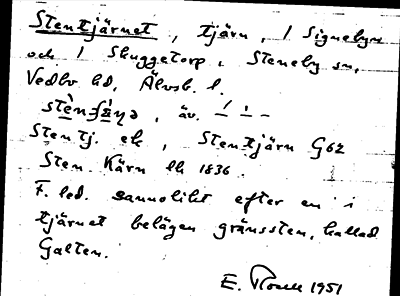 Stentjärnet, tjärn, / Signebyn
och / Skuggetorp, Steneby sn,
Vedbo hd, Älvsb. l.
äv.
Stentj. ek, Stentjärn G62
Sten Kärn lk 1836.
F. led. sannolikt efter en i
tjärnet belägen gränssten, kallad
Galten.
E. 1951